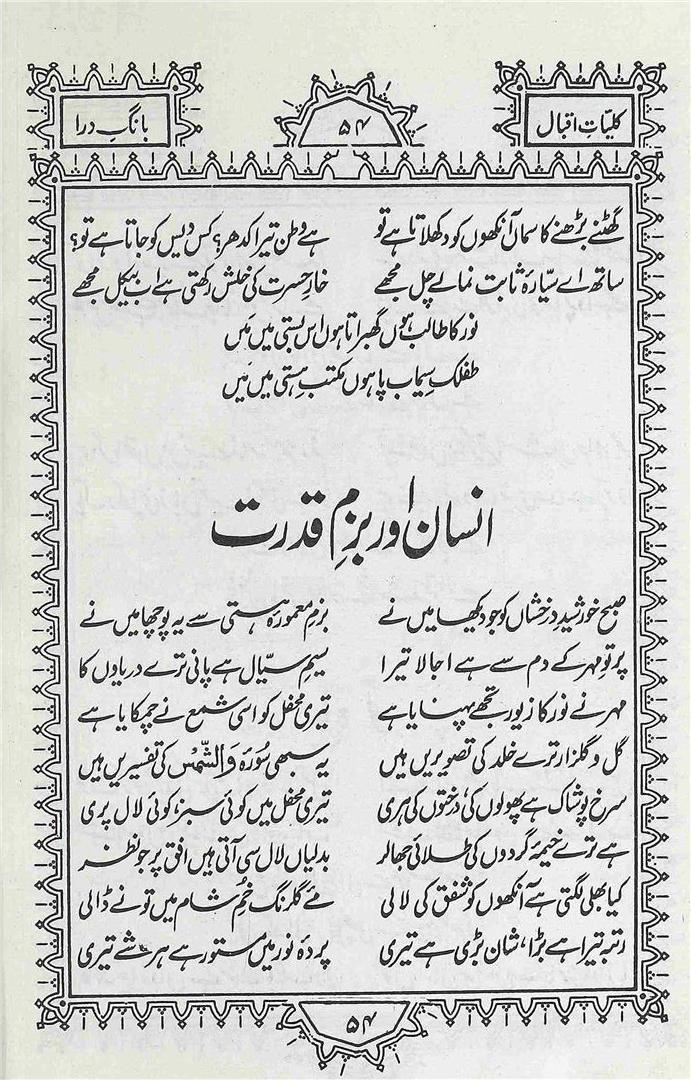 کلیاتِ اقبال
۵۴
بانگِ درا
گھٹنے بڑھنے کا سماں آنکھوں کو دکھلاتا ہے تو ہے وطن تیرا کدھر؟ کس دیس کو جاتا ہے تو؟
ساتھ اے سیّارۂ ثابت نما لے چل مجھے خارِ حسرت کی خلش رکھتی ہے اب بیکل مجھے
نور کا طالب ہوں گھبراتا ہوں اس بستی میں مَیں
طفلکِ سیماب پا ہوں مکتبِ ہستی میں مَیں
انسان اور بزمِ قدرت
صبح خورشیدِ درخشاں کو جو دیکھا میں نے بزمِ معمورۂ ہستی سے یہ پوچھا میں نے
پرتوِ مہر کے دم سے ہے اجالا تیرا سیمِ سیّال ہے پانی ترے دریاؤں کا
مہر نے نور کا زیور تجھے پہنایا ہے تیری محفل کو اسی شمع نے چمکایا ہے
گل و گلزار ترے خلد کی تصویریں ہیں یہ سبھی سُورۂ وَالشَّمْس کی تفسیریں ہیں
سرخ پوشاک ہے پھولوں کی، درختوں کی ہری تیری محفل میں کوئی سبز، کوئی لال پری
ہے ترے خیمۂ گردوں کی طلائی جھالر بدلیاں لال سی آتی ہیں افق پر جو نظر
کیا بھلی لگتی ہے آنکھوں کو شفق کی لالی مئے گلرنگ خُمِ شام میں تو نے ڈالی
رتبہ تیرا ہے بڑا، شان بڑی ہے تیری پردۂ نور میں مستور ہے ہر شے تیری
۵۴